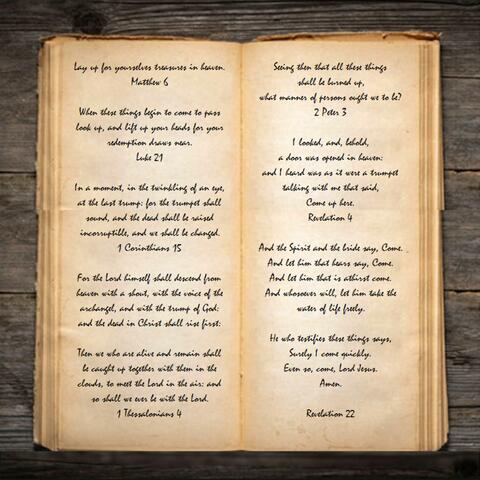 Lay up for yourselves treasures in heaven.
Matthew 6
When these things begin to come to pass
look up, and lift up your heads for your
redemption draws near.
Luke 21
In a moment, in the twinkling of an eye,
at the last trump: for the trumpet shall
sound, and the dead shall be raised
incorruptible, and we shall be changed.
1 Corinthians 15
For the Lord himself shall descend from
heaven with a shout, with the voice of the
archangel, and with the trump of God:
and the dead in Christ shall rise first:
Then we who are alive and remain shall
be caught up together with them in the
clouds, to meet the Lord in the air: and
so shall we ever be with the Lord.
1 Thessalonians 4
Seeing then that all these things
shall be burned up,
what manner of persons ought we to be?
2 Peter 3
I looked, and, behold,
a door was opened in heaven:
and I heard was as it were a trumpet
talking with me that said,
Come up here.
Revelation 4
And the Spirit and the bride say, Come.
And let him that hears say, Come.
And let him that is athirst come.
And whosoever will, let him take the
water of life freely.
He who testifies these things says,
Surely I come quickly.
Even so, come, Lord Jesus.
Amen.
Revelation 22